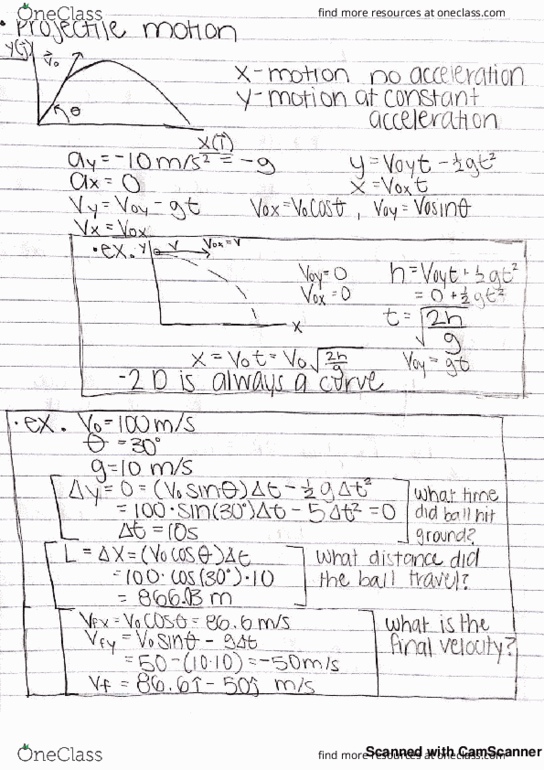 OneClass
find more resources at oneclass.com
• Projectile motion
y(ĵ)
v⃗₀
θ
x(î)
x-motion no acceleration
y-motion at constant
acceleration
ay = -10 m/s² = -g
ax = 0
Vy = Voy - gt
Vx = Vox
y = Voyt - ½gt²
x = Voxt
Vox = Vocosθ, Voy = Vosinθ
• ex. y
v
Vox = V
x
Voy = 0
Vox = 0
h = Voyt + ½gt²
= 0 + ½gt²
t = √(2h/g)
Voy = gt
x = Vot = Vo√(2h/g)
-2D is always a curve
• ex. Vo = 100 m/s
θ = 30°
g = 10 m/s
Δy = 0 = (Vo sinθ)Δt - ½gΔt²
= 100·sin(30°)Δt - 5Δt² = 0
Δt = 10s
what time
did ball hit
ground?
L = Δx = (Vo cosθ)Δt
= 100·cos(30°)·10
= 866.03 m
what distance did
the ball travel?
Vfx = Vocosθ = 86.6 m/s
Vfy = Vosinθ - gΔt
= 50 - (10·10) = -50 m/s
Vf = 86.6î - 50ĵ m/s
what is the
final velocity?
OneClass
find more resources at oneclass.com
Scanned with CamScanner